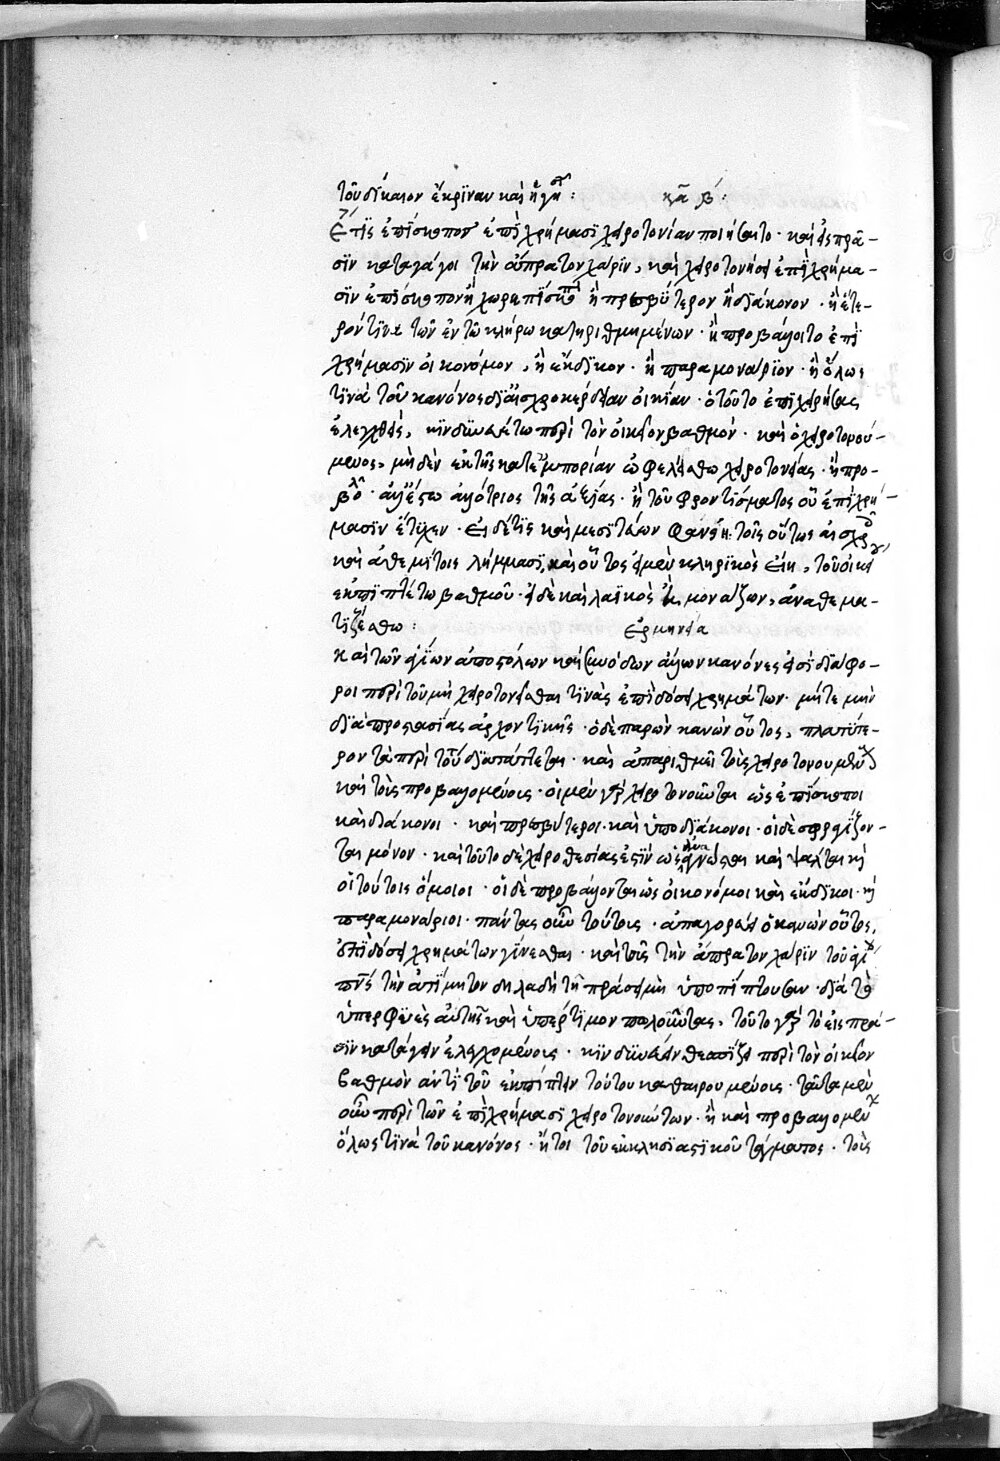 τοῦ δίκαιον ἔκριναν καὶ ἡ κ̅α̅ β΄:
Εἴ τις ἐπίσκοπον ἐπὶ χρήμασϊ χειροτονίαν ποιήσαιτο· καὶ εἰς πρᾶ-
σϊν καταγάγοι τὴν ἄπρατον χάρϊν, καὶ χειροτονήσει ἐπὶ χρήμα-
σϊν ἐπίσκοπον ἢ χωρεπίσκοπον ἢ πρεσβύτερον ἢ διάκονον· ἢ ἕτε-
ρόν τϊνα τῶν ἐν τῶ κλήρω κατηριθμημένων· ἢ προβάλοιτο ἐπὶ
χρήμασϊν οἰκονόμον, ἢ ἔκδϊκον· ἢ παραμονάρϊον· ἢ ὅλως
τϊνὰ τοῦ κανόνος δϊ αἰσχροκέρδειαν οἰκείαν· ὁ τοῦτο ἐπϊχειρήσας
ἐλεγχθεὶς, κϊνδϋνευέτω περὶ τὸν οἰκεῖον βαθμόν· καὶ ὁ χειροτονού-
μενος, μηδὲν ἐκ τῆς κατ' ἐμπορίαν ὠφελείσθω χειροτονίας· ἢ προ-
βολῆς· ἀλλ' ἔστω ἀλλότριος τῆς ἀξίας· ἢ τοῦ φροντίσματος οὗ ἐπὶ χρή-
μασϊν ἔτυχεν· εἰ δέ τϊς καὶ μεσϊτεύων φανείη τοῖς οὕτως αἰσχροῖς
καὶ ἀθεμίτοις λήμμασϊ, καὶ οὗτος εἰ μὲν κληρϊκὸς εἴη, τοῦ οἰκείου
ἐκπϊπτέτω βαθμοῦ· εἰ δὲ καὶ λαϊκὸς ἢ μονάζων, ἀναθεμα-
τϊζέσθω: Ἑρμηνεία
Καὶ τῶν ἁγίων ἀποστόλων καὶ συνόδων ἄλλων κανόνες εἰσὶ δϊάφο-
ροι περὶ τοῦ μὴ χειροτονεῖσθαι τϊνὰς ἐπὶ δόσει χρημάτων· μήτε μὴν
δϊὰ προστασίας ἀρχοντϊκῆς· ὁ δὲ παρὼν κανὼν οὗτος, πλατύτε-
ρον τὰ περὶ τούτου δϊατάττεται· καὶ ἀπαριθμεῖ τοὺς χειροτονουμένους
καὶ τοὺς προβαλλομένους· οἱ μὲν γὰρ χειροτονοῦνται ὡς ἐπίσκοποι
καὶ διάκονοι· καὶ πρεσβύτεροι· καὶ ὑποδϊάκονοι· οἱ δὲ σφραγίζον-
ται μόνον· καὶ τοῦτο δὲ χειροθεσίας ἐστϊν ὡς ἀναγνῶσται καὶ ψάλται καὶ
οἱ τούτοις ὅμοιοι· οἱ δὲ προβάλλονται ὡς οἰκονόμοι καὶ ἔκδϊκοι· καὶ
παραμονάριοι· πάντας οὖν τούτους· ἀπαγορεύει ὁ κανὼν οὗτος,
ἐπὶ δόσει χρημάτων γίνεσθαι· καὶ τοὺς τὴν ἄπρατον χάρϊν τοῦ ἁγίου
πνς τὴν ἀτίμητον δηλαδὴ τῆ πράσει μὴ ὑποπίπτουσαν· δϊὰ τὸ
ὑπερφυὲς αὐτῆς καὶ ὑπέρτϊμον πωλοῦντας, τοῦτο γὰρ τὸ εἰς πρᾶ-
σϊν κατάγειν ἐλεγχομένους· κϊνδϋνεύειν θεσπίζει περὶ τὸν οἰκεῖον
βαθμὸν ἀντὶ τοῦ ἐκπίπτειν τούτου καθαιρουμένους· ταῦτα μὲν
οὖν περὶ τῶν ἐπὶ χρήμασϊ χειροτονούντων· ἢ καὶ προβαλλομένων
ὅλως τϊνὰ τοῦ κανόνος· ἤτοι τοῦ ἐκκλησϊαστϊκοῦ τάγματος· τοὺς